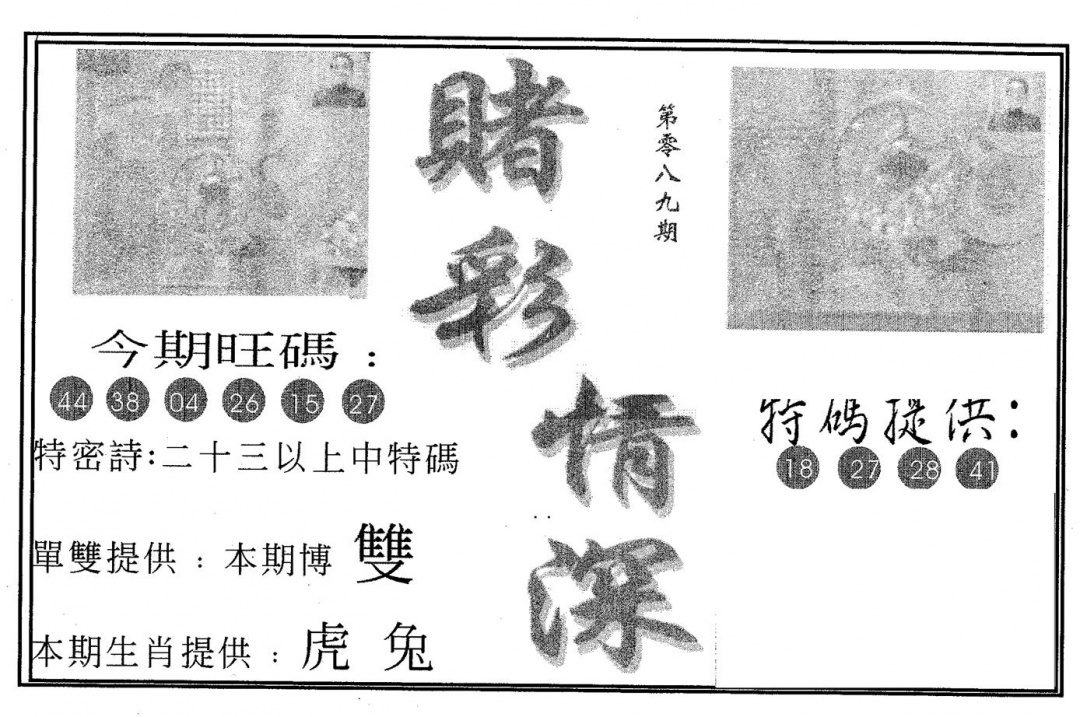 賭彩情深
第零八九期
今期旺碼：
44 38 04 26 15 27
特密詩:二十三以上中特碼
單雙提供：本期博 雙
本期生肖提供：虎 兔
特碼提供：
18 27 28 41